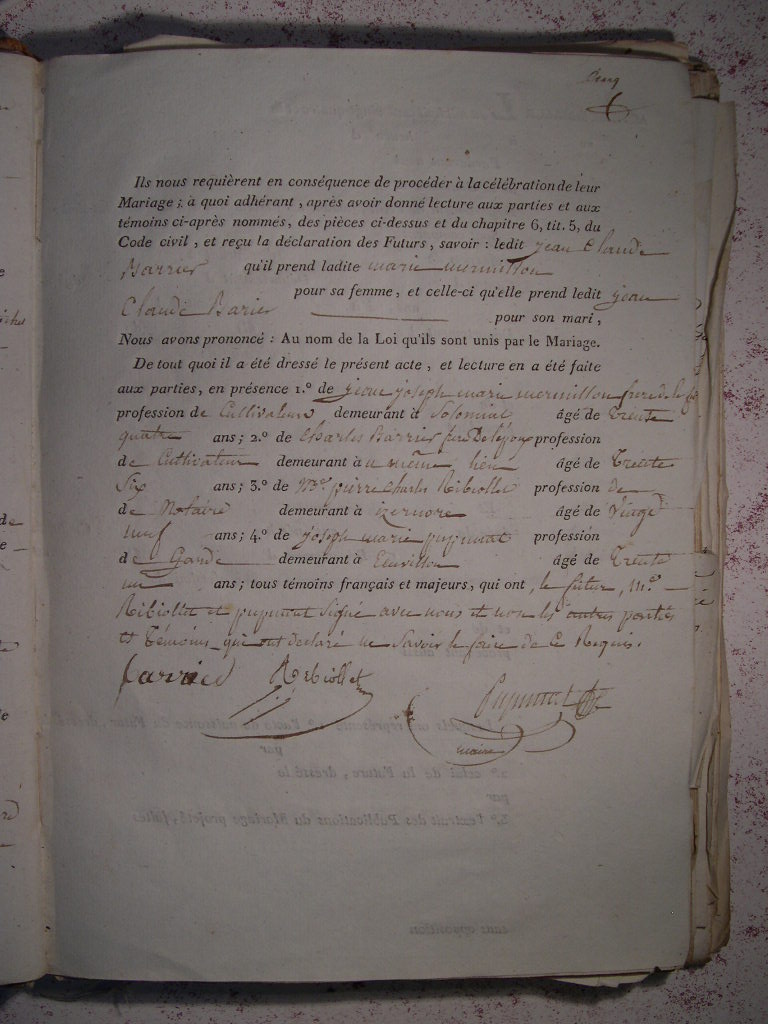 Cinq
Ils nous requièrent en conséquence de procéder à la célébration de leur
Mariage ; à quoi adhérant , après avoir donné lecture aux parties et aux
témoins ci-après nommés, des pièces ci-dessus et du chapitre 6, tit. 5, du
Code civil , et reçu la déclaration des Futurs, savoir : ledit jean Claude
Barrier qu'il prend ladite marie mermillon
pour sa femme, et celle-ci qu'elle prend ledit jean
Claude Barier pour son mari,
Nous avons prononcé : Au nom de la Loi qu'ils sont unis par le Mariage.
De tout quoi il a été dressé le présent acte , et lecture en a été faite
aux parties, en présence 1.º de jean joseph marie mermillon frere de la
profession de Cultivateur demeurant à Solomiat âgé de Trente
quatre ans ; 2.º de Charles Barrier profession
de Cultivateur demeurant à u même lieu âgé de Trente
Six ans ; 3.º de M.e pierre Charles Ribiollet profession de
de Notaire demeurant à izernore âgé de Vingt
neuf ans ; 4.º de joseph marie profession
de Garde demeurant à âgé de Trente
ans ; tous témoins français et majeurs, qui ont , le futur, M.e
Ribiollet et signé avec nous et non les autres parties
et Témoins qui ont declaré ne Savoir le faire de ce Requis.
barrier Rebiollet
maire